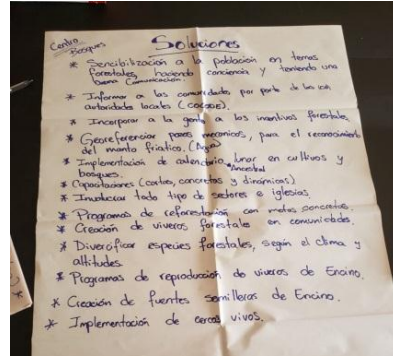 Centro
Bosques
Soluciones
* Sencibilización a la población en temas
forestales, haciendo conciencia y teniendo una
buena Comunicación.
* Informar a las comunidades por parte de las
autoridades locales (COCODE).
* Incorporar a la gente a los incentivos forestales
* Georeferenciar pozos mecanicos, para el reconocimiento
del manto friatico. (Agua)
* Implementación de calendario lunar en cultivos y
Ancestral
bosques.
* Capacitaciones (cortas, concretas y dinámicas)
* Involucrar todo tipo de sectores e iglesias.
* Programas de reforestación con metas concretas.
* Creación de viveros forestales en comunidades.
* Diversificar especies forestales, según el clima y
altitudes.
* Programas de reproducción de viveros de Encino.
* Creación de fuentes semilleros de Encino.
* Implementación de cercos vivos.